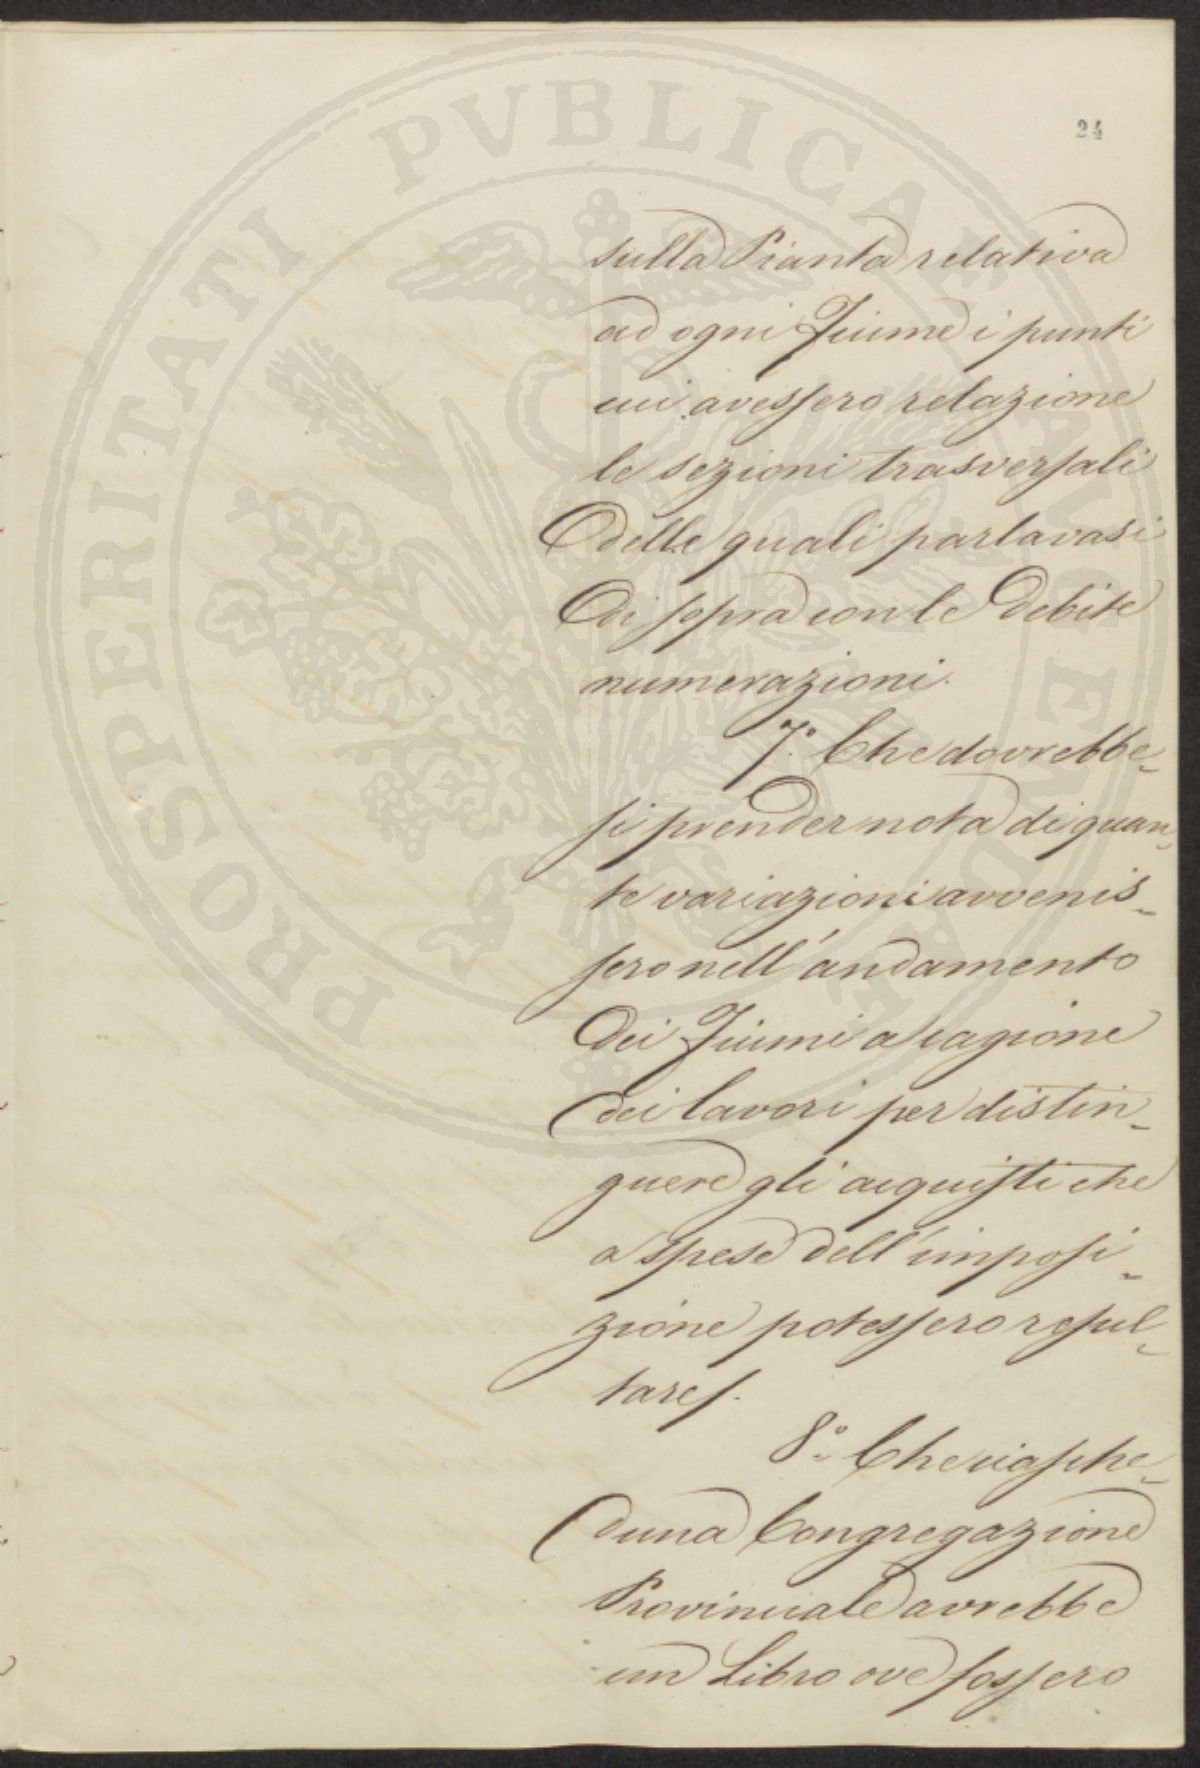 24
sulla Pianta relativa
ad ogni Fiume i punti
cui avessero relazione
le sezioni trasversali
delle quali parlavasi
di sopra con le debite
numerazioni.
7.° Che dovrebbe-
si prender nota di quan-
te variazioni avvenis-
sero nell'andamento
dei Fiumi a cagione
dei lavori per distin-
guere gli acquisti che
a spese dell'imposi-
zione potessero resul-
tare.
8.° Che ciasche-
duna Congregazione
Provinciale avrebbe
un Libro ove fossero
PROSPERITATI PVBLICAE AVGENDAE